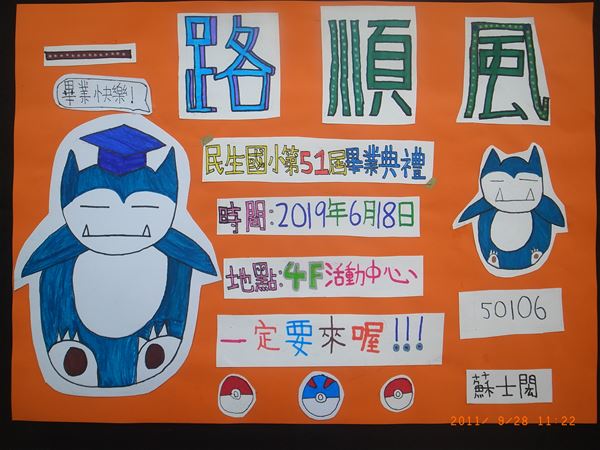 一路順風
畢業快樂!
民生國小第51屆畢業典禮
時間:2019年6月18日
地點:4F活動中心、
一定要來喔!!!
50106
蘇士閎
2011/ 9/28 11:22